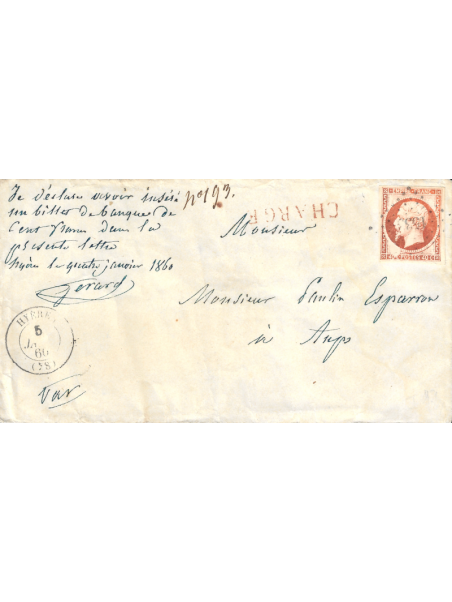 Je déclare avoir inséré
un billet de banque de
Cent francs dans la
présente lettre
Hyères le quatre janvier 1860
Gérard
N° 123.
CHARGÉ
EMPIRE FRANC
40 c POSTES 40 c
Monsieur
Monsieur Paulin Esparron
à Aups
HYÈRES
5
JANV
60
(78)
Var